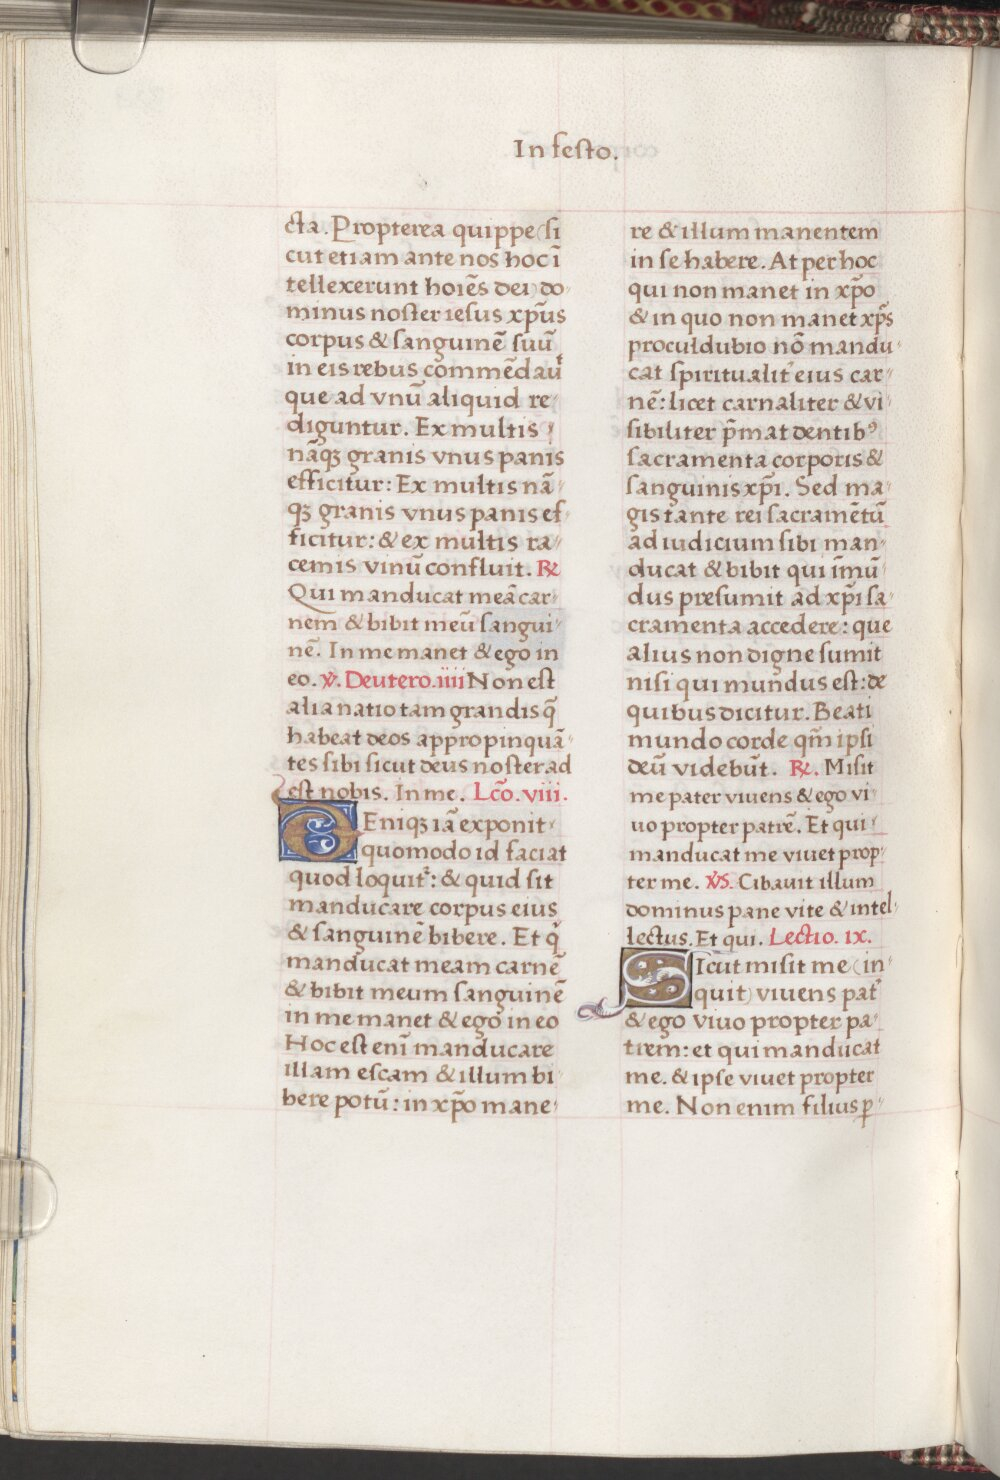 In festo.
cta. Propterea quippe (si
cut etiam ante nos hoc ī
tellexerunt hoiēs dei) do
minus noster iesus xp̄us
corpus & sanguinē suū
in eis rebus cōmēdauͭ
que ad vnū aliquid re
diguntur. Ex multis
nāqꝫ granis vnus panis
efficitur: Ex multis nā
qꝫ granis vnus panis ef
ficitur: & ex multis ra
cemis vinū confluit. ℟
Qui manducat meā car
nem & bibit meū sangui
nē. In me manet & ego in
eo. ℣. Deutero. iiii Non est
alia natio tam grandis q̄
habeat deos appropinquā
tes sibi sicut deus noster ad
est nobis. In me. Lc̄o. viii.
Deniqꝫ iā exponit
quomodo id faciat
quod loquit᷑: & quid sit
manducare corpus eius
& sanguinē bibere. Et qͥ
manducat meam carnē
& bibit meum sanguinē
in me manet & ego in eo
Hoc est enī manducare
illam escam & illum bi
bere potū: in xp̄o mane
re & illum manentem
in se habere. At per hoc
qui non manet in xp̄o
& in quo non manet xp̄s
proculdubio nō mandu
cat spiritualit᷑ eius car
nē: licet carnaliter & vi
sibiliter p̄mat dentibꝰ
sacramenta corporis &
sanguinis xp̄i. Sed ma
gis tante rei sacramētū
ad iudicium sibi man
ducat & bibit qui īmū
dus presumit ad xp̄i sa
cramenta accedere: que
alius non digne sumit
nisi qui mundus est: de
quibus dicitur. Beati
mundo corde qm̄ ipsi
deū videbūt. ℟. Misit
me pater viuens & ego vi
uo propter patrē. Et qui
manducat me viuet prop
ter me. ℣S. Cibauit illum
dominus pane vite & intel
lectus. Et qui. Lectio. ix.
Sicut misit me (in
quit) viuens pat᷑
& ego viuo propter pa
trem: et qui manducat
me. & ipse viuet propter
me. Non enim filius ꝑ